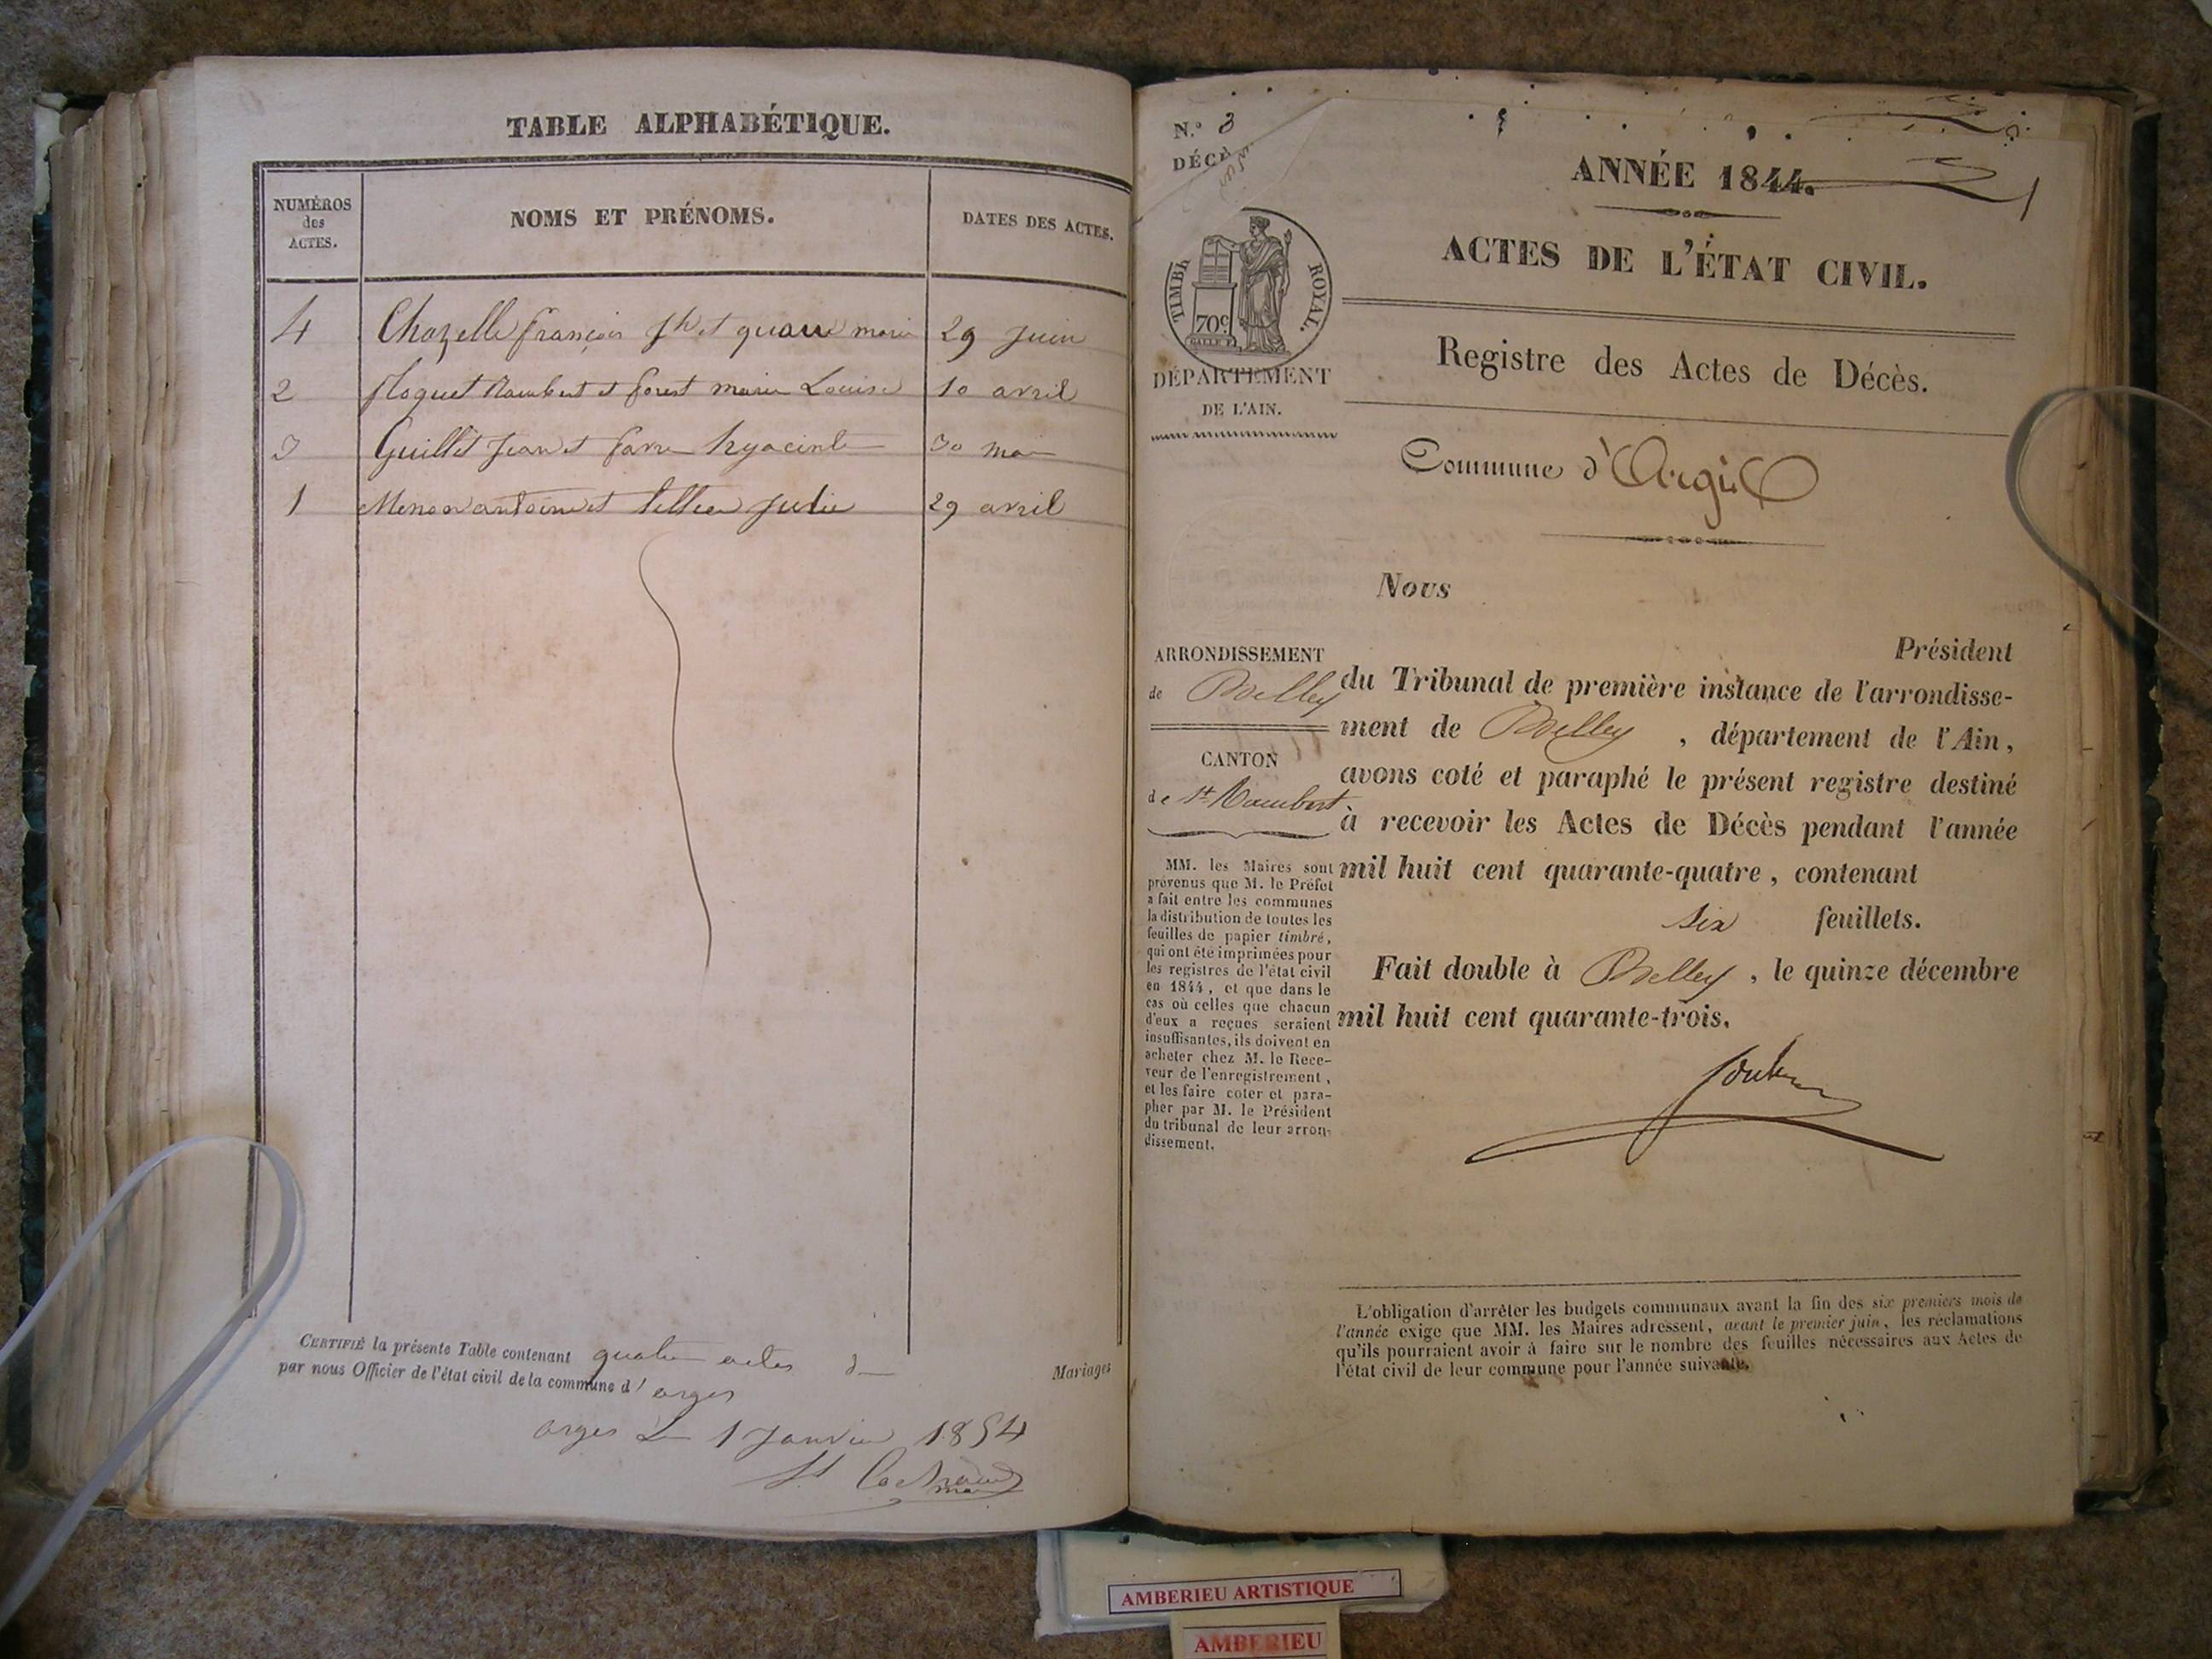 TABLE ALPHABÉTIQUE.
NUMÉROS
des
ACTES.
NOMS ET PRÉNOMS.
DATES DES ACTES.
4 Chazelle françois Jh et marie 29 Juin
2 floquet Rambert et forest marie Louise 10 avril
3 Guillet Jean et favre hyacinte 30 mai
1 Menon antoine et Julie 29 avril
CERTIFIÉ la présente Table contenant quatre actes de Mariages
par nous Officier de l'état civil de la commune d' arges
arges Le 1 Janvier 1854
N.° 3
DÉCÈ
TIMBR ROYAL.
70c
DÉPARTEMENT
DE L'AIN.
ARRONDISSEMENT
de Belley
CANTON
de St Rambert
MM. les Maires sont
prévenus que M. le Préfet
a fait entre les communes
la distribution de toutes les
feuilles de papier timbré,
qui ont été imprimées pour
les registres de l'état civil
en 1844, et que dans le
cas où celles que chacun
d'eux a reçues seraient
insuffisantes, ils doivent en
acheter chez M. le Rece-
veur de l'enregistrement,
et les faire coter et para-
pher par M. le Président
du tribunal de leur arron-
dissement.
ANNÉE 1844.
ACTES DE L'ÉTAT CIVIL.
Registre des Actes de Décès.
Commune d'Argis
Nous
Président
du Tribunal de première instance de l'arrondisse-
ment de Belley, département de l'Ain,
avons coté et paraphé le présent registre destiné
à recevoir les Actes de Décès pendant l'année
mil huit cent quarante-quatre, contenant
six feuillets.
Fait double à Belley, le quinze décembre
mil huit cent quarante-trois.
L'obligation d'arrêter les budgets communaux avant la fin des six premiers mois de
l'année exige que MM. les Maires adressent, avant le premier juin, les réclamations
qu'ils pourraient avoir à faire sur le nombre des feuilles nécessaires aux Actes de
l'état civil de leur commune pour l'année suivante.
AMBERIEU ARTISTIQUE
AMBERIEU